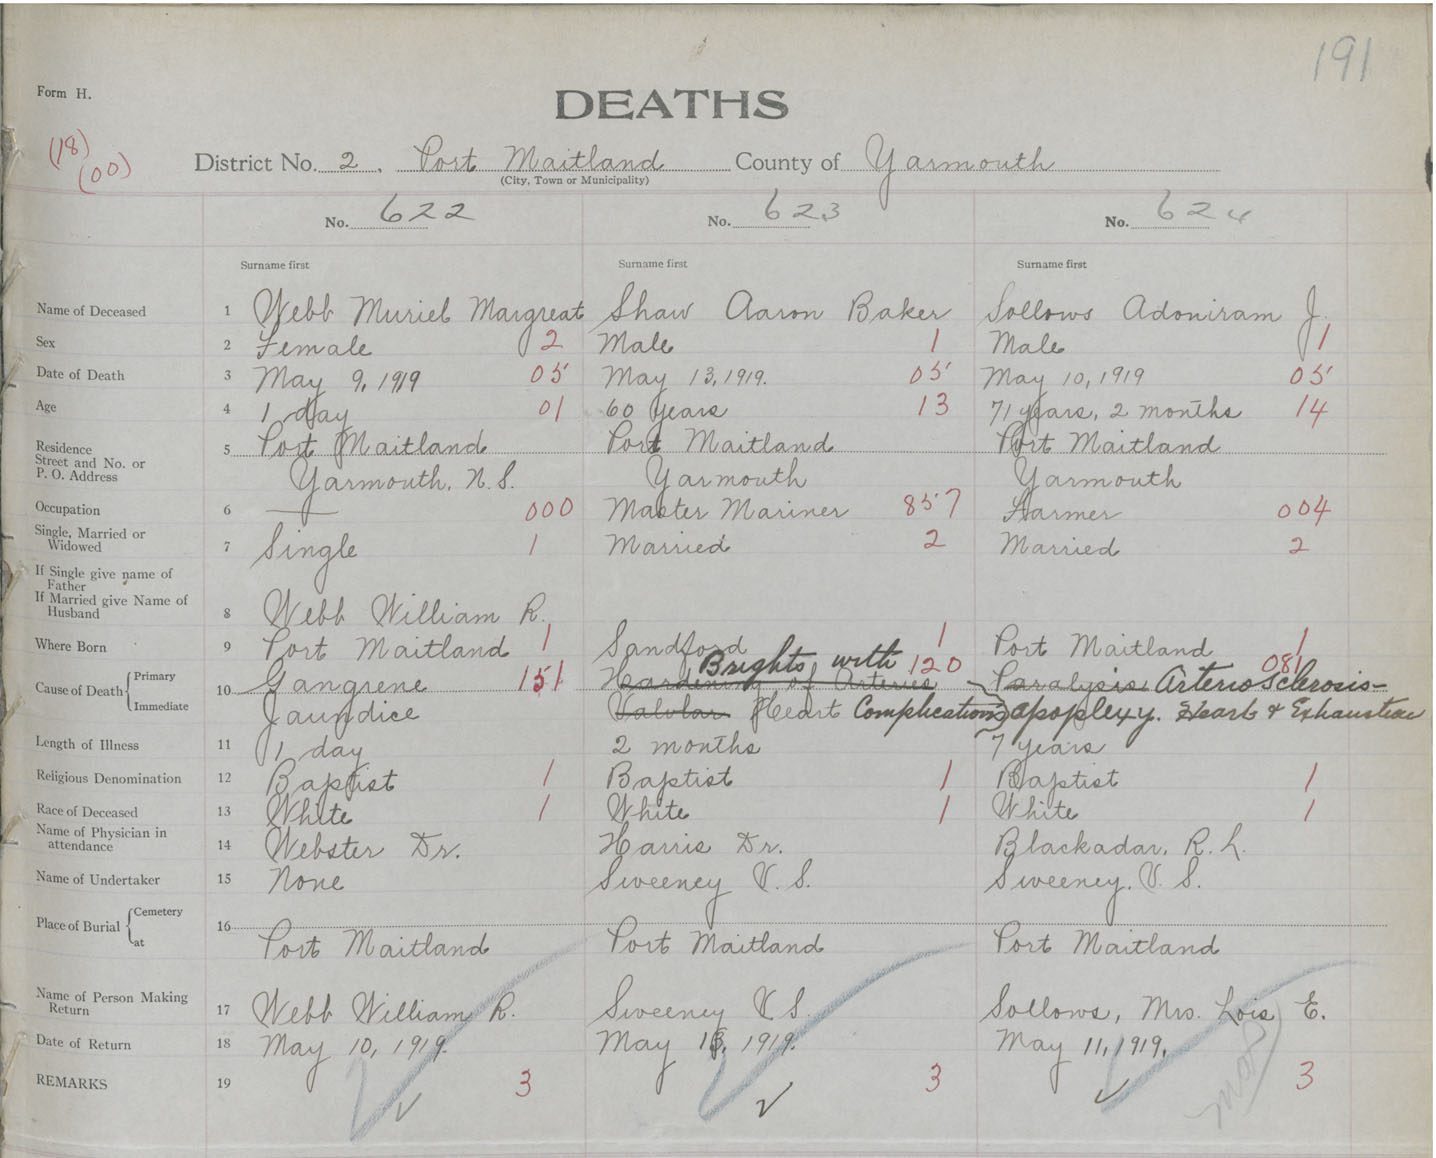 191
Form H.
DEATHS
(18)
(00)
District No. 2, Port Maitland County of Yarmouth
(City, Town or Municipality)
No. 622 No. 623 No. 624
Surname first Surname first Surname first
Name of Deceased 1 Webb Muriel Margreat Shaw Aaron Baker Sollows Adoniram J.
Sex 2 Female 2 Male 1 Male 1
Date of Death 3 May 9, 1919 05 May 13, 1919. 05 May 10, 1919 05
Age 4 1 day 01 60 years 13 71 years, 2 months 14
Residence
Street and No. or 5 Port Maitland Port Maitland Port Maitland
P. O. Address Yarmouth, N.S. Yarmouth Yarmouth
Occupation 6 — 000 Master Mariner 857 Farmer 004
Single, Married or
Widowed 7 Single 1 Married 2 Married 2
If Single give name of
Father
If Married give Name of
Husband 8 Webb William R.
Where Born 9 Port Maitland 1 Sandford 1 Port Maitland 1
Brights with 120 081
Cause of Death { Primary 10 Gangrene 151 Hardening of Arteries Paralysis Arterio Sclerosis-
Immediate Jaundice Valvular Heart Complications apoplexy. Heart & Exhaustion
Length of Illness 11 1 day 2 months 7 years
Religious Denomination 12 Baptist 1 Baptist 1 Baptist 1
Race of Deceased 13 White 1 White 1 White 1
Name of Physician in
attendance 14 Webster Dr. Harris Dr. Blackadar, R. L.
Name of Undertaker 15 None Sweeney V. S. Sweeney, V. S.
Place of Burial { Cemetery 16
at Port Maitland Port Maitland Port Maitland
Name of Person Making
Return 17 Webb William R. Sweeney V S. Sollows, Mrs. Lois E.
Date of Return 18 May 10, 1919. May 13, 1919. May 11, 1919.
REMARKS 19 3 3 3